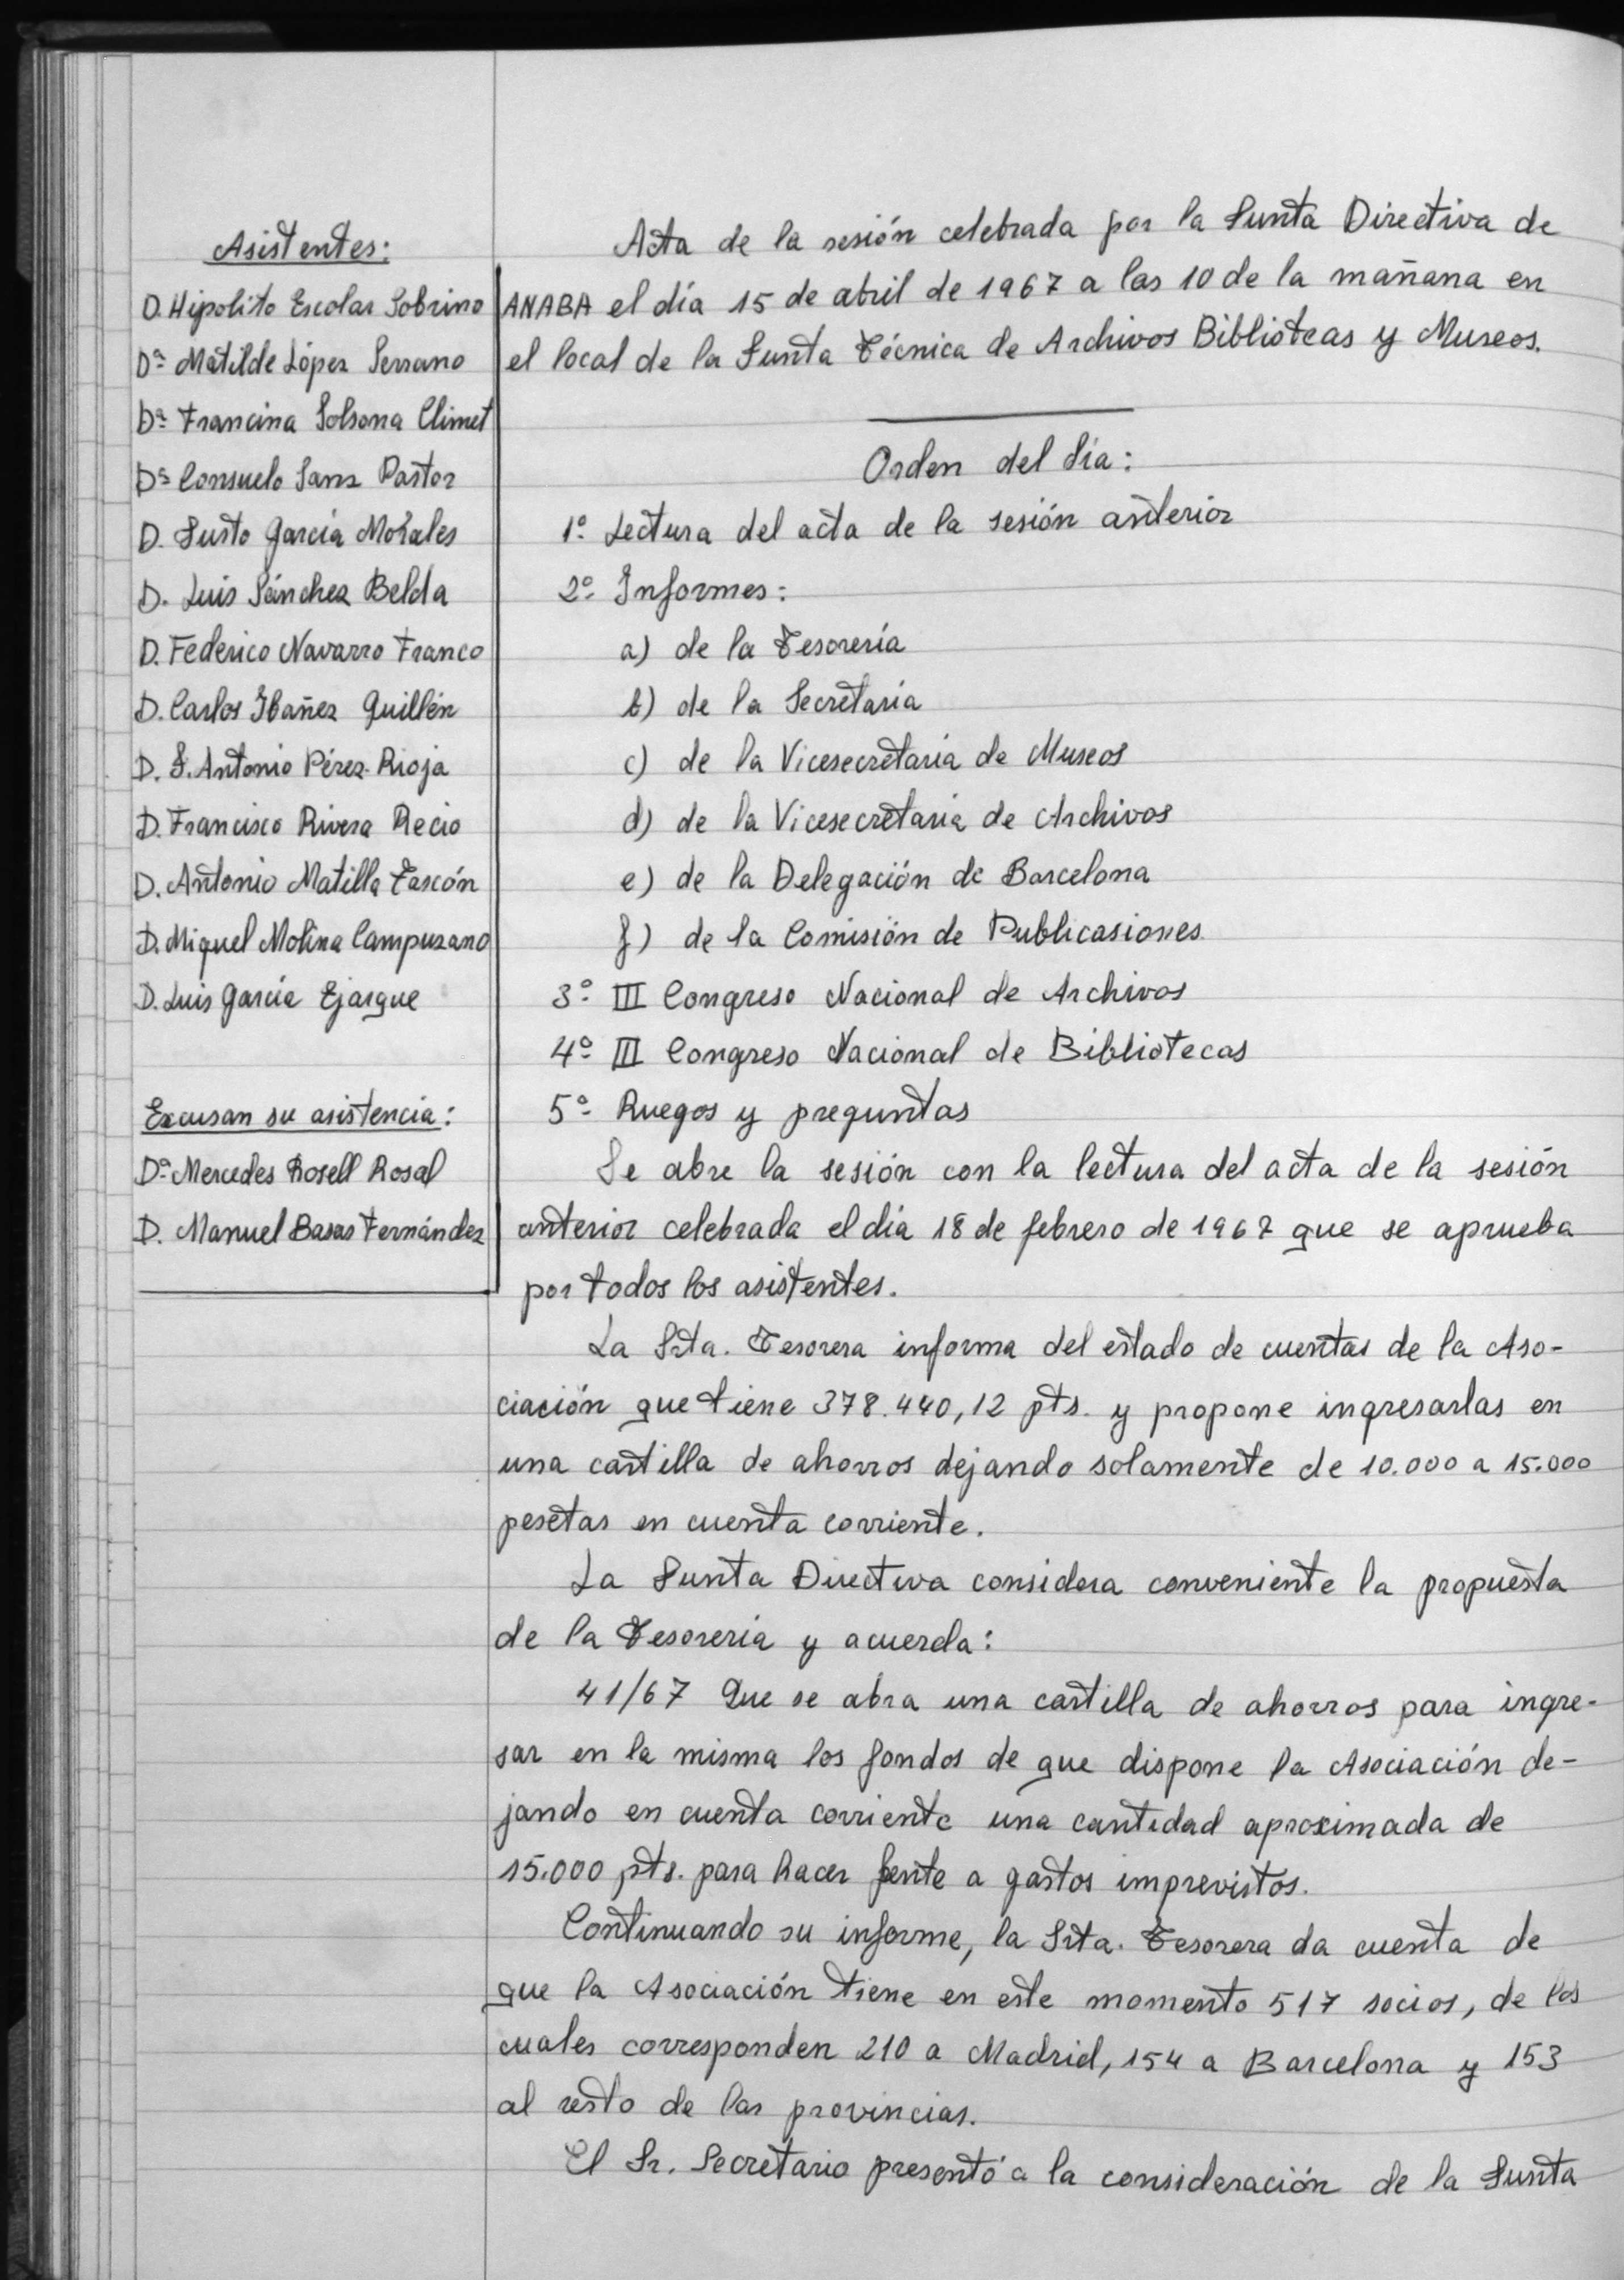 Asistentes:
D. Hipolito Escolar Sobrino
Dª Matilde López Serrano
Dª Francina Solsona Climet
Dª Consuelo Sanz Pastor
D. Justo García Morales
D. Luis Sánchez Belda
D. Federico Navarro Franco
D. Carlos Ibañez Guillén
D. J. Antonio Pérez-Rioja
D. Francisco Rivera Recio
D. Antonio Matilla Tascón
D. Miguel Molina Campuzano
D. Luis García Ejarque
Excusan su asistencia:
Dª Mercedes Rosell Rosal
D. Manuel Basas Fernández
Acta de la sesión celebrada por la Junta Directiva de
ANABA el día 15 de abril de 1967 a las 10 de la mañana en
el local de la Junta Técnica de Archivos Bibliotecas y Museos.
Orden del día:
1º Lectura del acta de la sesión anterior
2º Informes:
a) de la Tesorería
b) de la Secretaría
c) de la Vicesecretaría de Museos
d) de la Vicesecretaría de Archivos
e) de la Delegación de Barcelona
f) de la Comisión de Publicasiones
3º III Congreso Nacional de Archivos
4º III Congreso Nacional de Bibliotecas
5º Ruegos y preguntas
Se abre la sesión con la lectura del acta de la sesión
anterior celebrada el día 18 de febrero de 1967 que se aprueba
por todos los asistentes.
La Srta. Tesorera informa del estado de cuentas de la Aso-
ciación que tiene 378.440,12 pts. y propone ingresarlas en
una cartilla de ahorros dejando solamente de 10.000 a 15.000
pesetas en cuenta corriente.
La Junta Directiva considera conveniente la propuesta
de la Tesorería y acuerda:
41/67 Que se abra una cartilla de ahorros para ingre-
sar en la misma los fondos de que dispone la Asociación de-
jando en cuenta corriente una cantidad aproximada de
15.000 pts. para hacer fente a gastos imprevistos.
Continuando su informe, la Srta. Tesorera da cuenta de
que la Asociación tiene en este momento 517 socios, de los
cuales corresponden 210 a Madrid, 154 a Barcelona y 153
al resto de las provincias.
El Sr. Secretario presentó a la consideración de la Junta